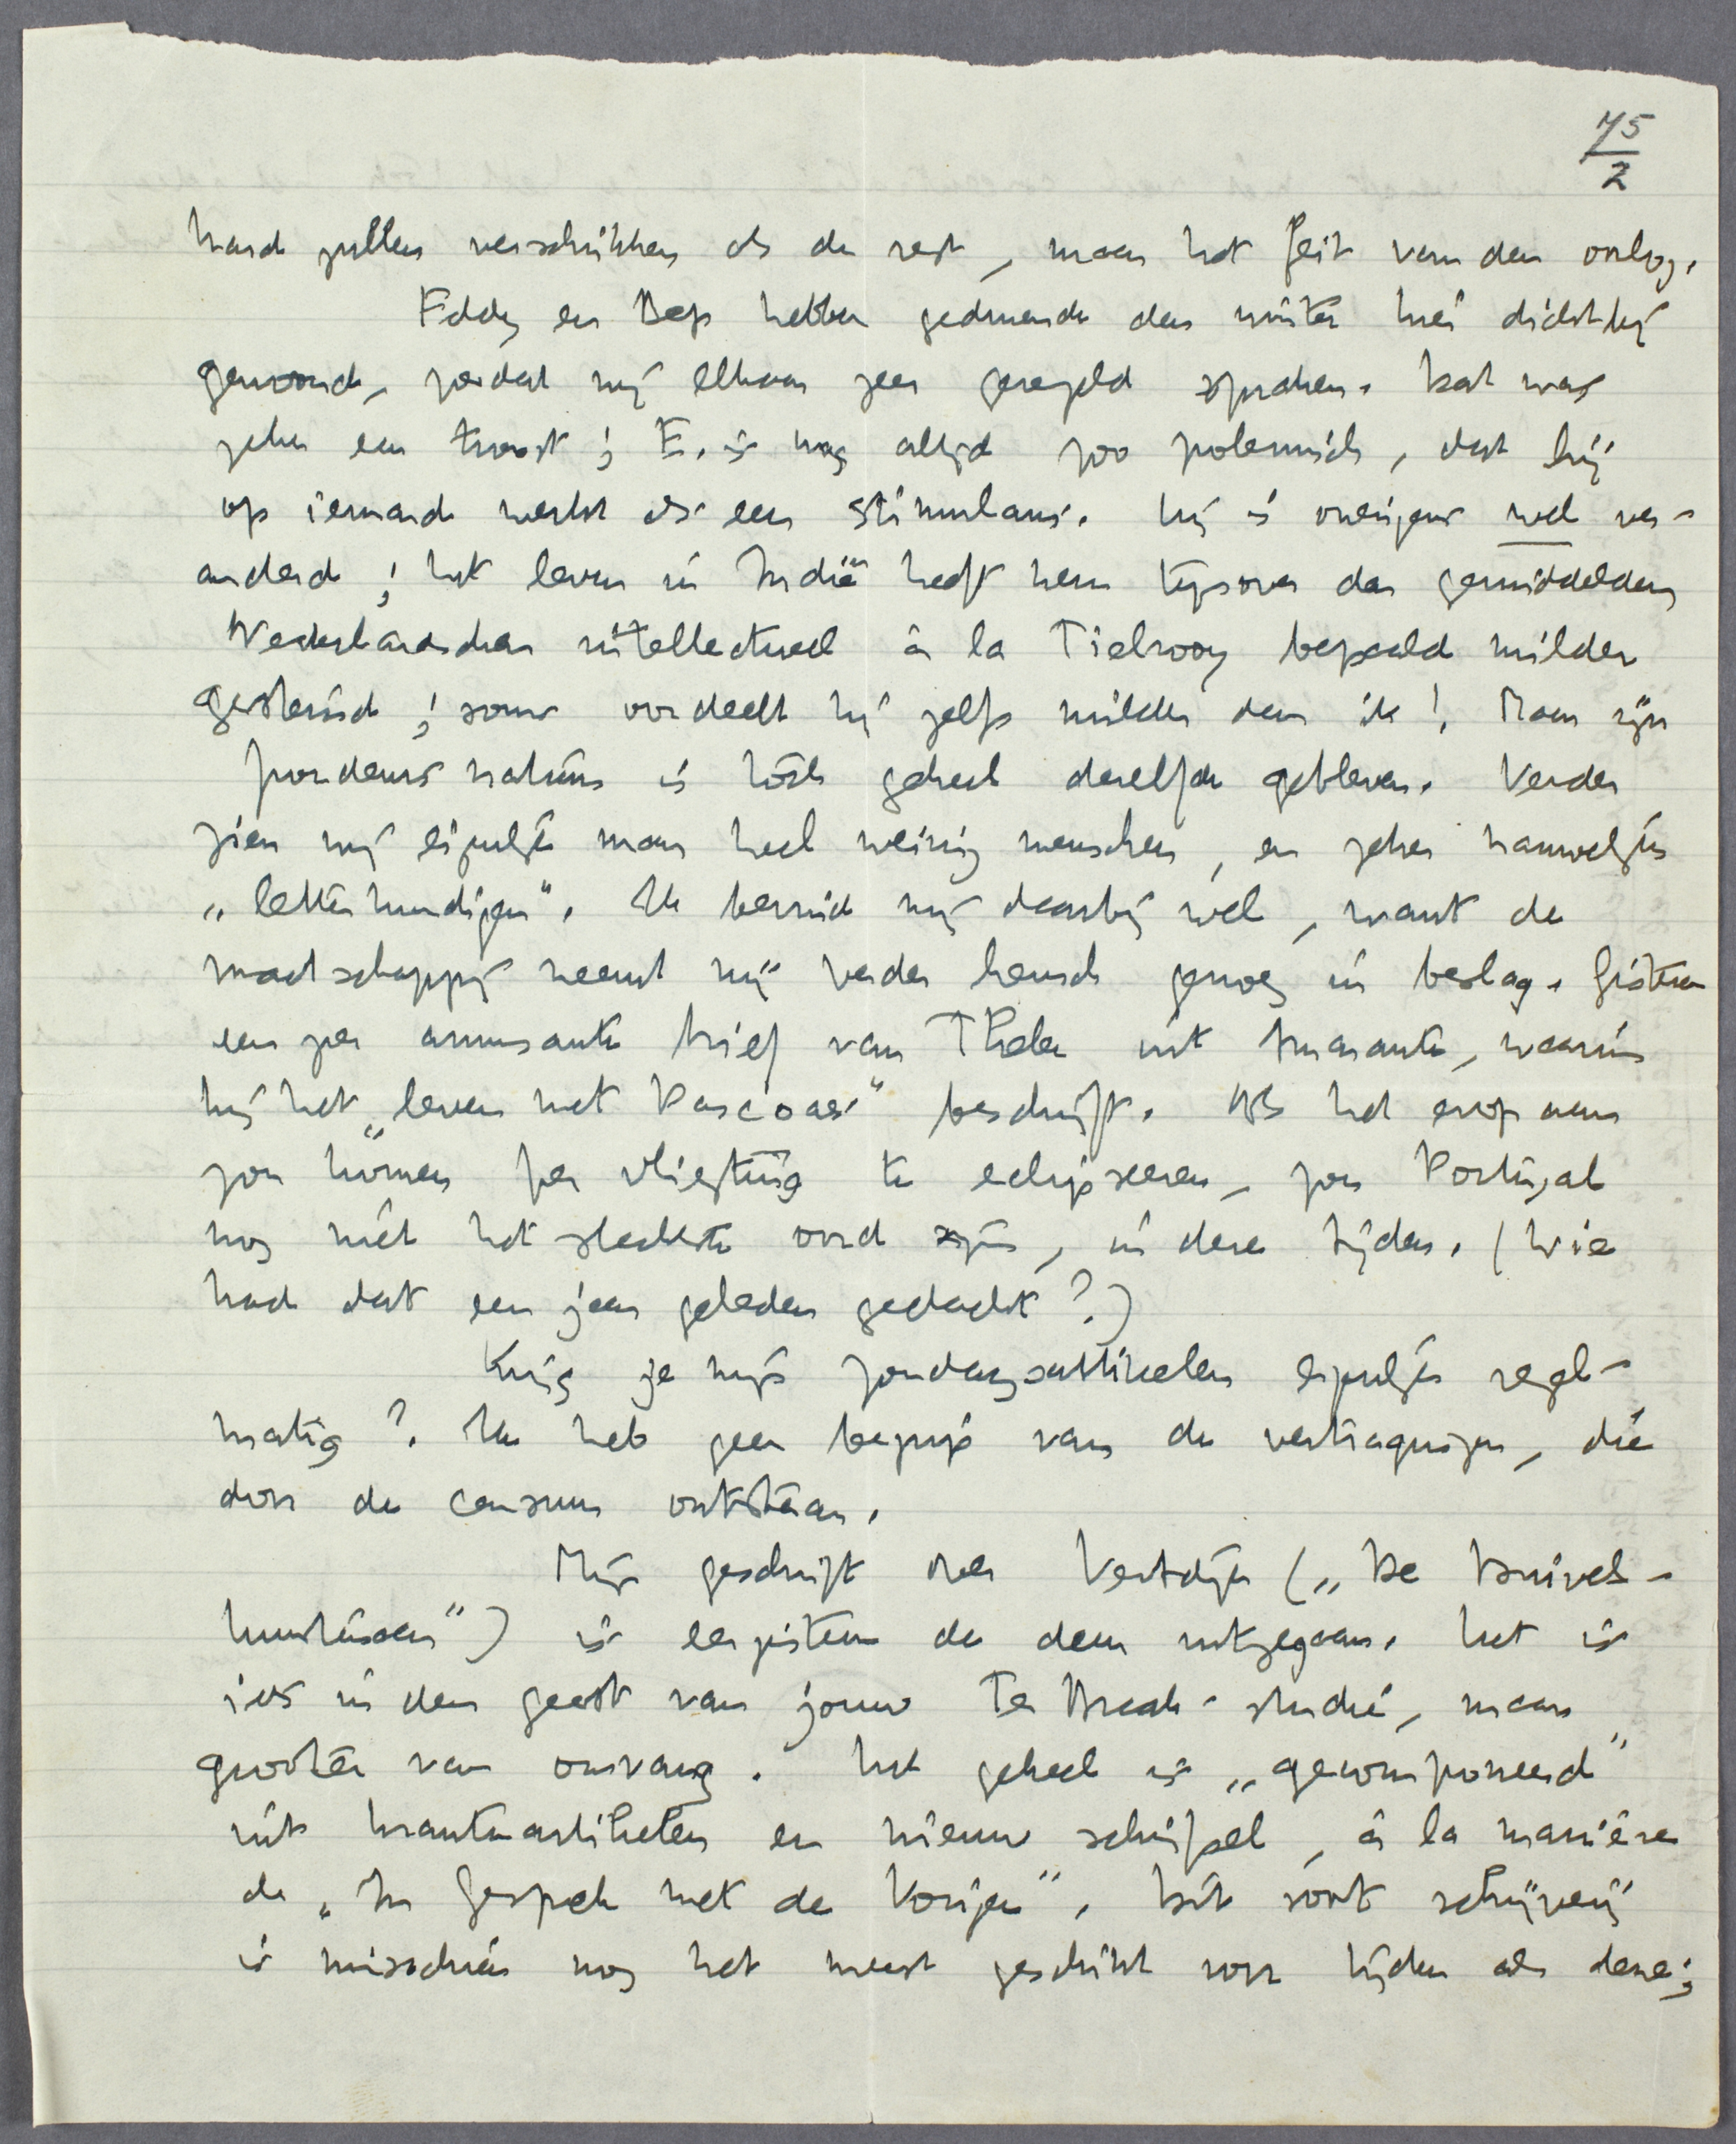 75
2
hard zullen verschrikken als de rest, maar het feit van den oorlog.
Eddy en Bep hebben gedurende den winter hier dichtbij
gewoond, zoodat wij elkaar zeer geregeld spraken. Dat was
zeker een troost; E. is nog altijd zoo polemisch, dat hij
op iemand werkt als een stimulans. Hij is overigens wel ver-
anderd; het leven in Indië heeft hem tegenover den gemiddelden
Nederlandschen intellectueel à la Tielrooy bepaald milder
gestemd; soms oordeelt hij zelfs milder dan ik! Maar zijn
fundamens natuur is toch geheel dezelfde gebleven. Verder
zien wij eigenlijk maar heel weinig menschen, en zeker nauwelijks
„letterkundigen". Ik bevind mij daarbij wel, want de
maatschappij neemt mij verder heusch genoeg in beslag. Gisteren
een zeer amusante brief van Thelen uit Amarante, waarin
hij het „leven met Pascoaes" beschrijft. Als het erop aan
zou komen per vliegtuig te eclipseeren, zou Portugal
nog niet het slechtste oord zijn, in deze tijden. (Wie
had dat een jaar geleden gedacht?)
Krijg je mijn zondagsartikelen eigenlijk regel-
matig? Ik heb geen begrip van de vertragingen, die
door de censuur ontstaan.
Mijn geschrift over Vestdijk („De Duivels-
kunstenaar") is eergisteren de deur uitgegaan. Het is
iets in den geest van jouw Ter Braak-studie, maar
grooter van omvang. Het geheel is „gecomponeerd"
uit krantenartikelen en nieuw schrijfsel, à la manière
de „In Gesprek met de Vorigen". Dit soort schrijverij
is misschien nog het meest geschikt voor tijden als deze;